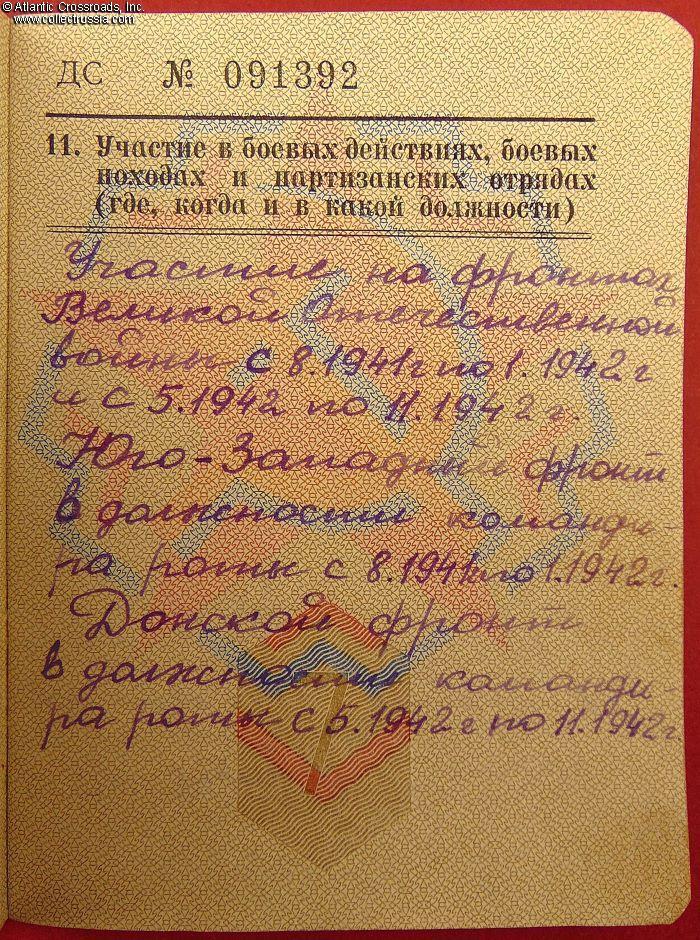 © Atlantic Crossroads, Inc.
www.collectrussia.com
ДС № 091392
11. Участие в боевых действиях, боевых
походах и партизанских отрядах
(где, когда и в какой должности)
Участие на фронтах
Великой Отечественной
войны с 8.1941г по 1.1942г
и с 5.1942 по 11.1942 г.
Юго-Западный фронт
в должности команди-
ра роты с 8.1941г по 1.1942г.
Донской фронт
в должности команди-
ра роты с 5.1942г по 11.1942г.